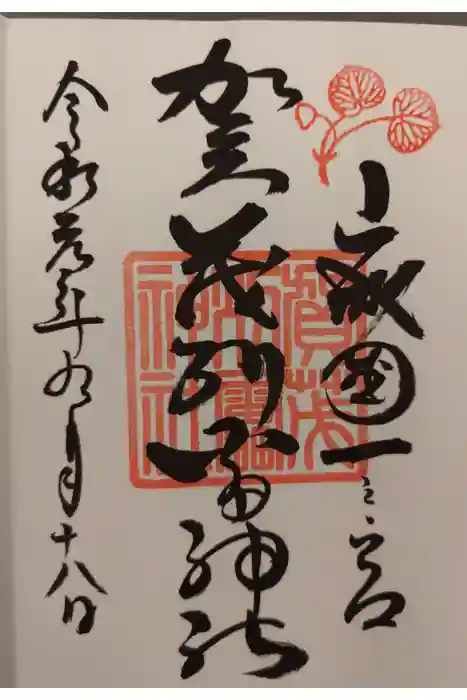 山城国一之宮
賀茂別雷神社
令和元年九月十八日
賀茂
別雷
神社